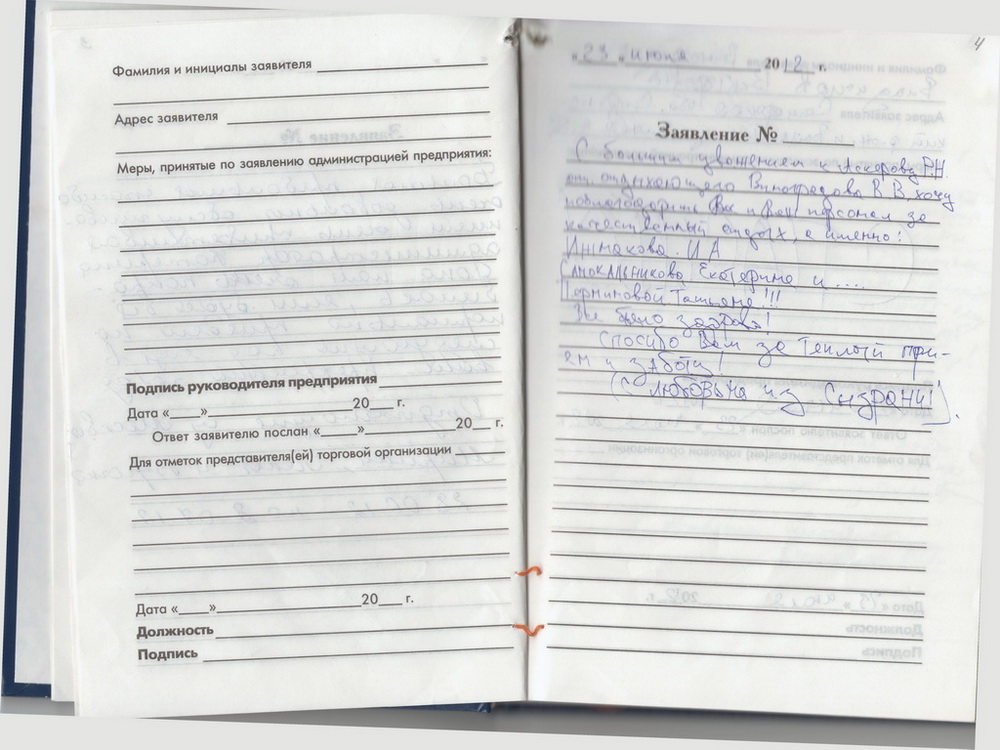 3
Фамилия и инициалы заявителя
Адрес заявителя
Меры, принятые по заявлению администрацией предприятия:
Подпись руководителя предприятия
Дата «____» 20___ г.
Ответ заявителю послан «____» 20___ г.
Для отметок представителя(ей) торговой организации
Дата «____» 20___ г.
Должность
Подпись
4
«23» июня 2012 г.
Заявление №
С большим уважением к Аскерову Р.Н.
от отдыхающего Виноградова В.В. хочу
поблагодарить Вас и Ваш персонал за
качественный отдых, а именно:
И.А
Самокальникова Екатерина и ....
Татьяне!!!
Все было здорово!
Спасибо Вам за теплый при-
ем и заботу!
(С любовью из Сызрани!)